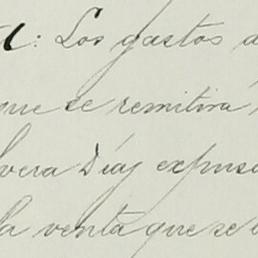 a: Los gastos d
que se remitirá
vera Díaz expuso
la venta que se